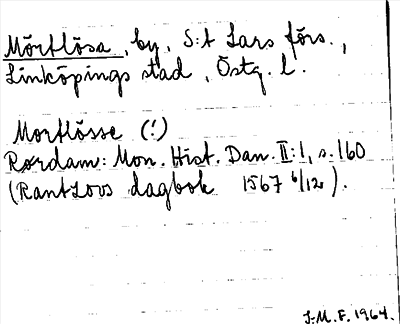 Mörtlösa, by, S:t Lars förs.,
Linköpings stad, Östg. l.
Mortlösse (!)
Rørdam: Mon. Hist. Dan. II:1, s. 160
(Rantzovs dagbok 1567 6/12).
J.M.F. 1964.